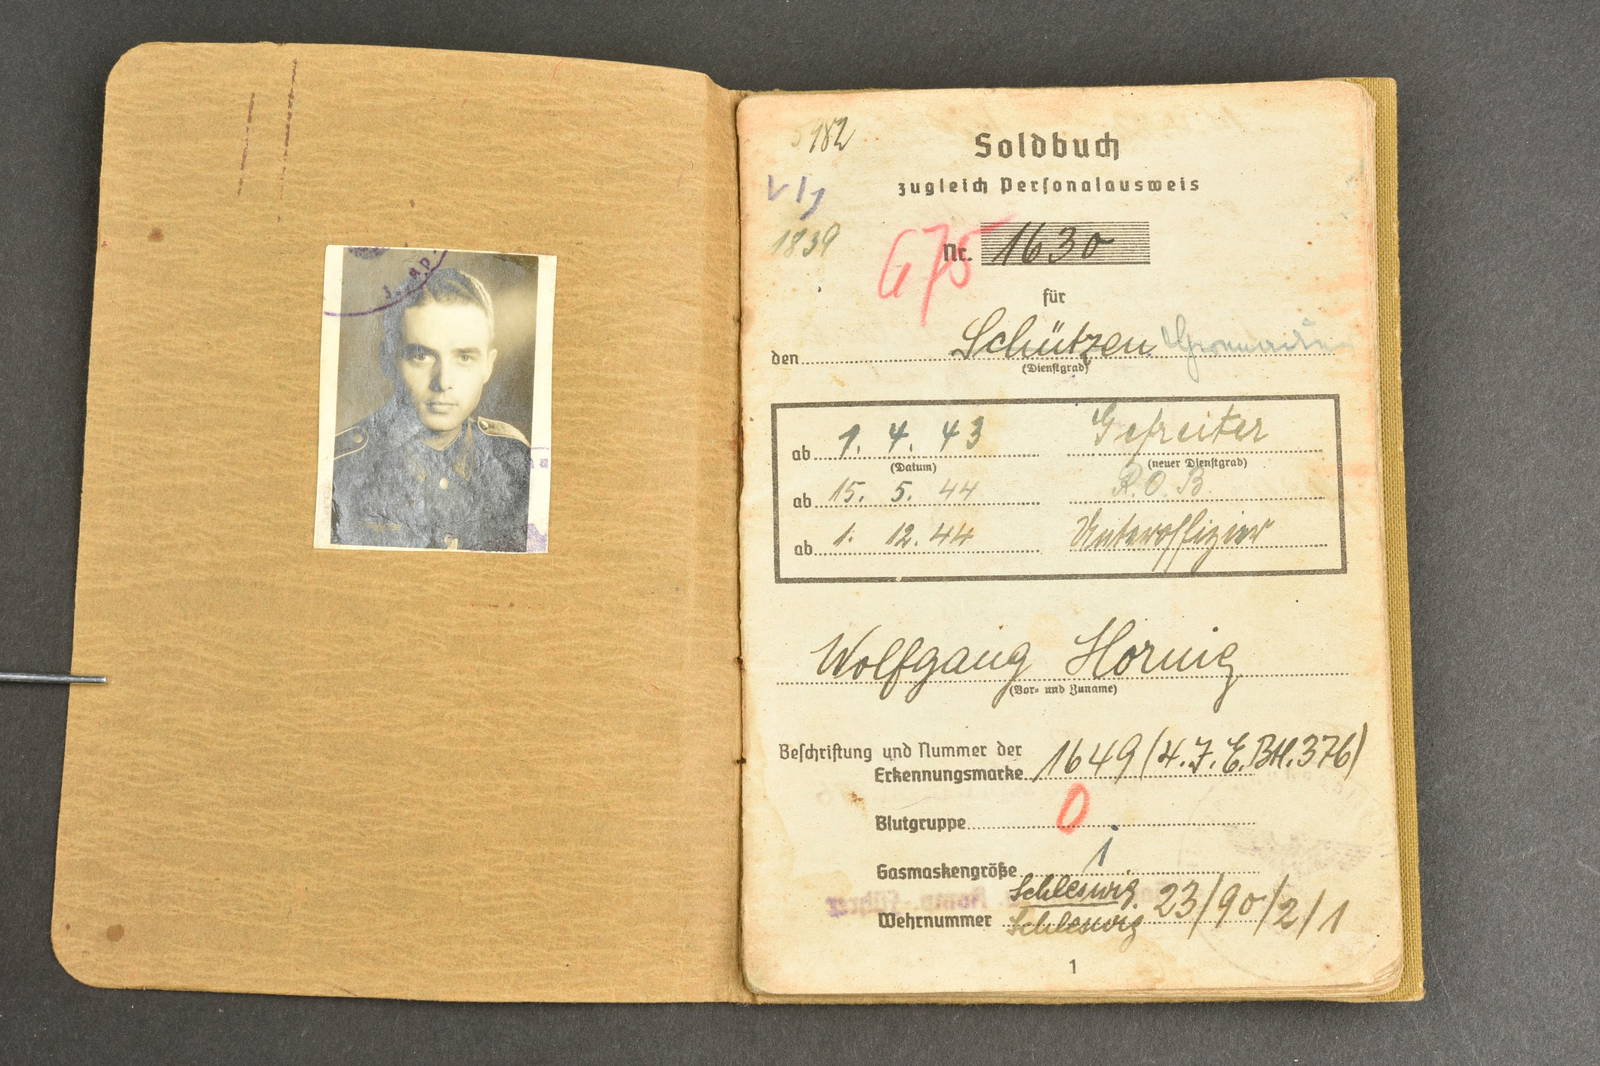 182
Soldbuch
zugleich Personalausweis
1839
675
Nr. 1630
für
den Schützen Grenadier
(Dienstgrad)
ab 1. 4. 43 Gefreiter
(Datum) (neuer Dienstgrad)
ab 15. 5. 44 R.O.B.
ab 1. 12. 44 Unteroffizier
Wolfgang Hornig
(Vor- und Zuname)
Beschriftung und Nummer der
Erkennungsmarke 1649 (4.J.E.Btl.376)
Blutgruppe 0
Gasmaskengröße 1
Schleswig
Wehrnummer Schleswig 23/90/2/1
1